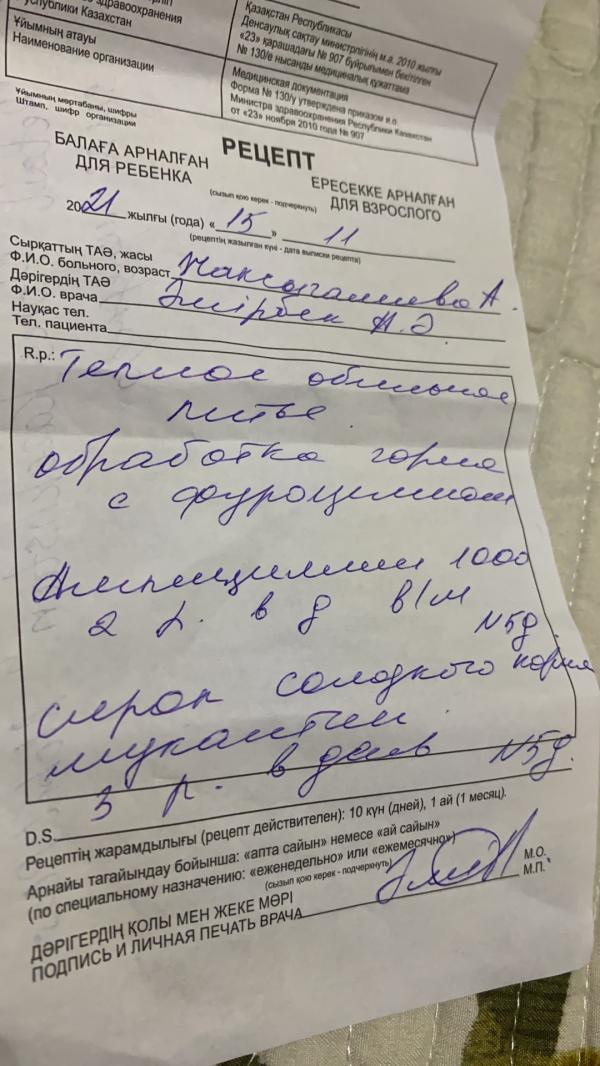 спублики Казахстан
Ұйымның атауы
Наименование организации
Қазақстан Республикасы
Денсаулық сақтау министрлігінің м.а. 2010 жылғы
«23» қарашадағы № 907 бұйрығымен бекітілген
№ 130/е нысанды медициналық құжаттама
Медицинская документация
Форма № 130/у утверждена приказом и.о.
Министра здравоохранения Республики Казахстан
от «23» ноября 2010 года № 907
Ұйымның мөртабаны, шифры
Штамп, шифр организации
РЕЦЕПТ
БАЛАҒА АРНАЛҒАН
ДЛЯ РЕБЕНКА
(сызып қою керек - подчеркнуть)
ЕРЕСЕККЕ АРНАЛҒАН
ДЛЯ ВЗРОСЛОГО
2021 жылғы (года) «15» 11
(рецептің жазылған күні - дата выписки рецепта)
Сырқаттың ТАӘ, жасы
Ф.И.О. больного, возраст А.
Дәрігердің ТАӘ
Ф.И.О. врача Әмірбек А.Ә
Науқас тел.
Тел. пациента
R.p.: Теплое обильное
питье
обработка горла
с фуроциллином
Ампициллин 1000
2 р. в д в/м
N5д.
сироп солодкого корня
мукалтин
3 р. в день N5д.
D.S.
Рецептің жарамдылығы (рецепт действителен): 10 күн (дней), 1 ай (1 месяц).
Арнайы тағайындау бойынша: «апта сайын» немесе «ай сайын»
(по специальному назначению: «еженедельно» или «ежемесячно»)
(сызып қою керек - подчеркнуть)
ДӘРІГЕРДІҢ ҚОЛЫ МЕН ЖЕКЕ МӨРІ
ПОДПИСЬ И ЛИЧНАЯ ПЕЧАТЬ ВРАЧА
М.О.
М.П.